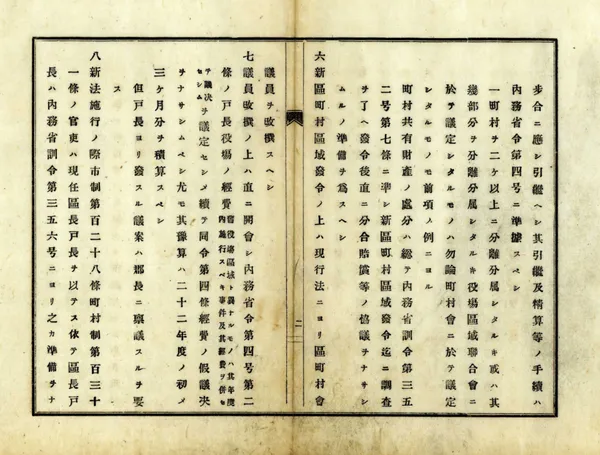 步合ニ應シ引繼ヘシ其引繼及精算等ノ手續ハ
內務省令第四号ニ準據スベシ
一町村ヲ二ケ以上ニ分離分属シタルキ或ハ其
幾部分ヲ分離分属シタルキ役場區域聯合會ニ
於テ議定シタルモノハ勿論町村會ニ於テ議定
シタルモノモ前項ノ例ニヨル
町村共有財產ノ處分ハ総テ內務省訓令第三五
二号第七條ニ準シ新區町村區域發令迄ニ調査
ヲ了ヘ發令後直ニ分合賠償等ノ協議ヲナサシ
ムルノ準備ヲ爲スヘシ
六新區町村區域發令ノ上ハ現行法ニヨリ區町村會
二
議員ヲ改撰スヘシ
七議員改撰ノ上ハ直ニ開會シ內務省令第四号第二
條ノ戶長役場ノ經費舊役塲區域ト異ナルモノハ其年度
內施行スベキ事件及其經費ヲ併セ
テ議決セシム
ヲ議定セシメ續テ同令第四條經費ノ假議決
ヲナサシムベシ尤モ其豫算ハ二十二年度ノ初メ
三ケ月分ヲ積算スベシ
但戶長ヨリ發スル議案ハ郡長ニ禀議スルヲ要
ス
八新法施行ノ際市制第百二十八條町村制第百三十
一條ノ官吏ハ現任區長戶長ヲ以テス依テ區長戶
長ハ內務省訓令第三五六号ニヨリ之カ準備ヲナ